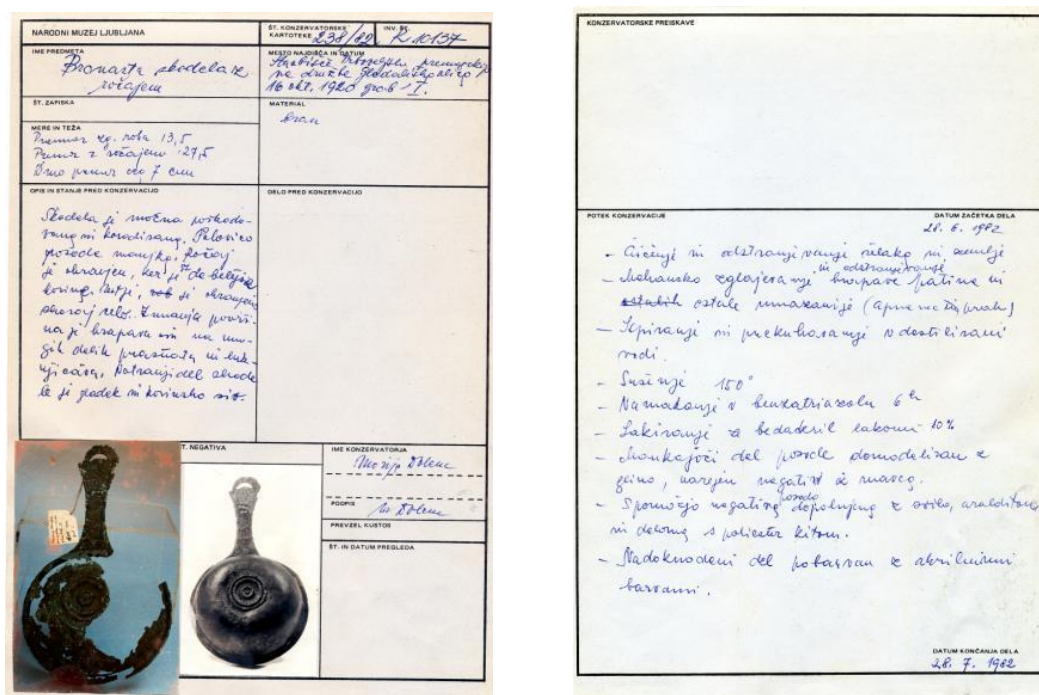 NARODNI MUZEJ LJUBLJANA
ŠT. KONZERVATORSKE
KARTOTEKE 238/82
INV. ŠT.
R 10137
IME PREDMETA
Bronasta skodela z
ročajem
MESTO NAJDIŠČA IN DATUM
16 okt. 1920 grob I.
ŠT. ZAPISKA
MATERIAL
bron
MERE IN TEŽA
Premer zg. roba 13,5
Premer z ročajem 27,5
Dno premer cca 7 cm
OPIS IN STANJE PRED KONZERVACIJO
Skodela je močno poškodo-
vana in korodirana. Polovico
posode manjka. Ročaj
je ohranjen, ker je
je ohranjen
skoraj cel. Zunanja površi-
na je hrapava in na mno-
gih delih in luk-
njičava. Notranji del skode
le je gladek in
DELO PRED KONZERVACIJO
T. NEGATIVA
IME KONZERVATORJA
Marija Dolenc
PODPIS
M Dolenc
PREVZEL KUSTOS
ŠT. IN DATUM PREGLEDA
KONZERVATORSKE PREISKAVE
POTEK KONZERVACIJE
DATUM ZAČETKA DELA
28. 6. 1982
- Čiščenje in odstranjevanje in zemlje
- Mehansko in odstranjevanje hrapave patine in
ostale umazanije
- Izpiranje in prekuhavanje v destilirani
vodi.
- Sušenje 150°
- Namakanje v benzatriazolu 6 h
- Lakiranje z bedacryl lakom 10%
- Manjkajoči del posode domodeliran z
glino, narejen negativ iz mavca.
- S pomočjo negativa posoda dopolnjena z
in deloma s poliester kitom.
- Nadoknadeni del pobarvan z akrilnimi
barvami.
DATUM KONČANJA DELA
28. 7. 1982